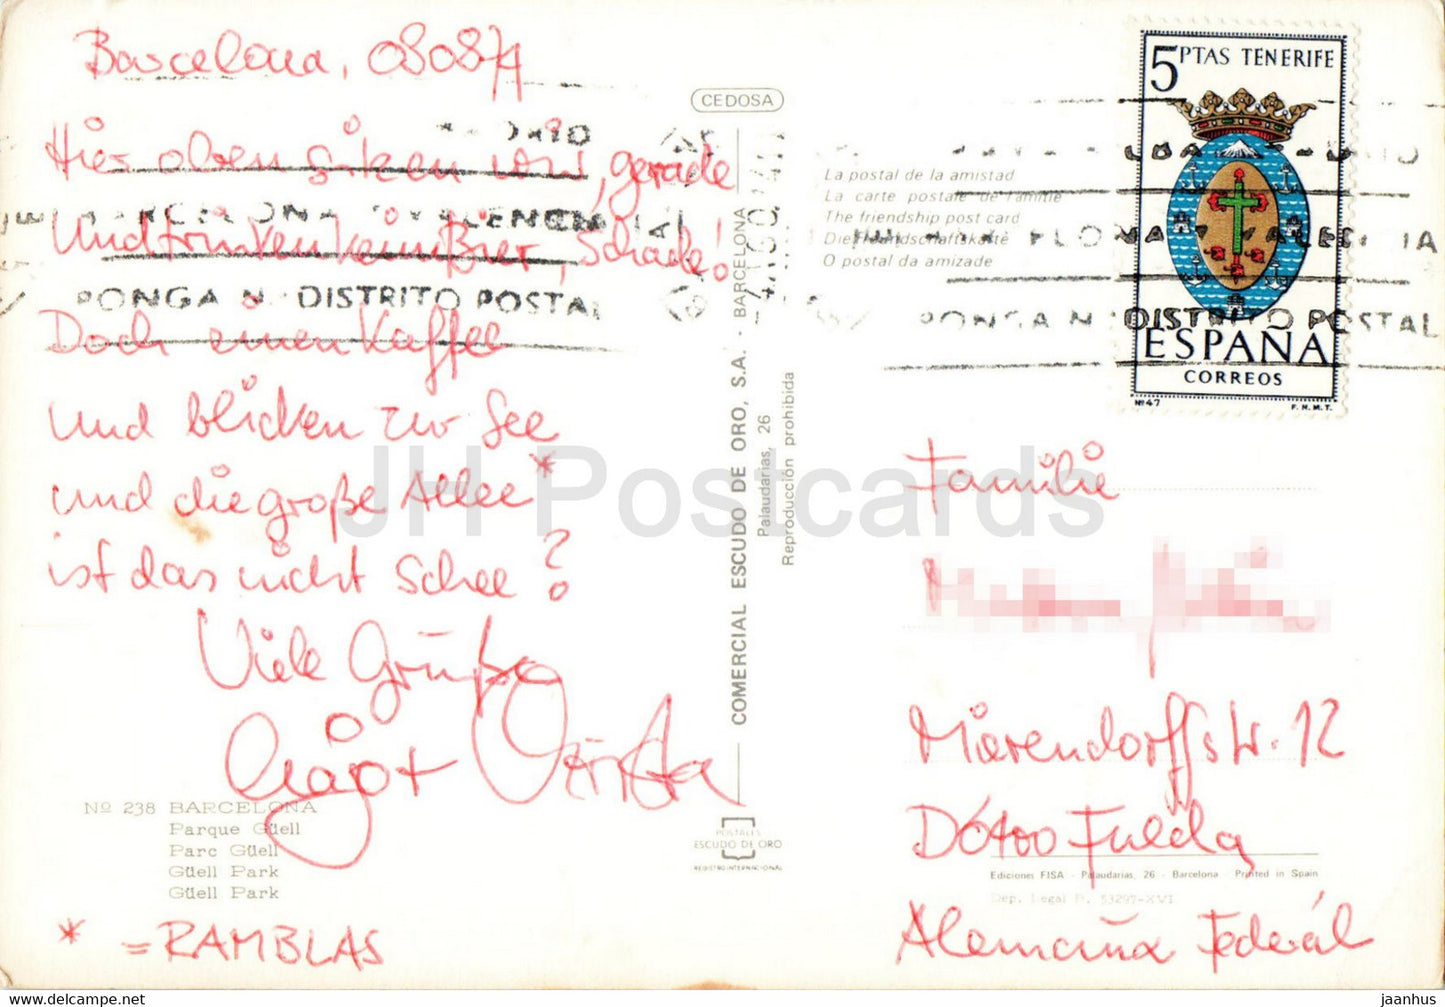 Barcelona, 080874
Hier oben sitzen wir, gerade
Und trinken kein Bier, Schade!
Doch einen Kaffee
und blicken zur See
und die große Allee*
ist das nicht schee?
Viele Grüße
Nº 238 BARCELONA
Parque Güell
Parc Güell
Güell Park
Güell Park
* = RAMBLAS
BARCELONA VALENCIA
PONGA N. DISTRITO POSTAL
CEDOSA
COMERCIAL ESCUDO DE ORO, S.A. - BARCELONA
Palaudarias, 26
Reproducción prohibida
POSTALES
ESCUDO DE ORO
REGISTRO INTERNACIONAL
La postal de la amistad
La carte postale de l'amitié
The friendship post card
Die Freundschaftskarte
O postal da amizade
5 PTAS TENERIFE
ESPAÑA
CORREOS
Nº 47 F.N.M.T.
PONGA N. DISTRITO POSTAL
Familie
Mierendorffstr. 12
D6400 Fulda
Alemaña Federál
Ediciones FISA - Palaudarias, 26 - Barcelona - Printed in Spain
Dep. Legal B. 53297-XVI
JH Postcards
jaanhus